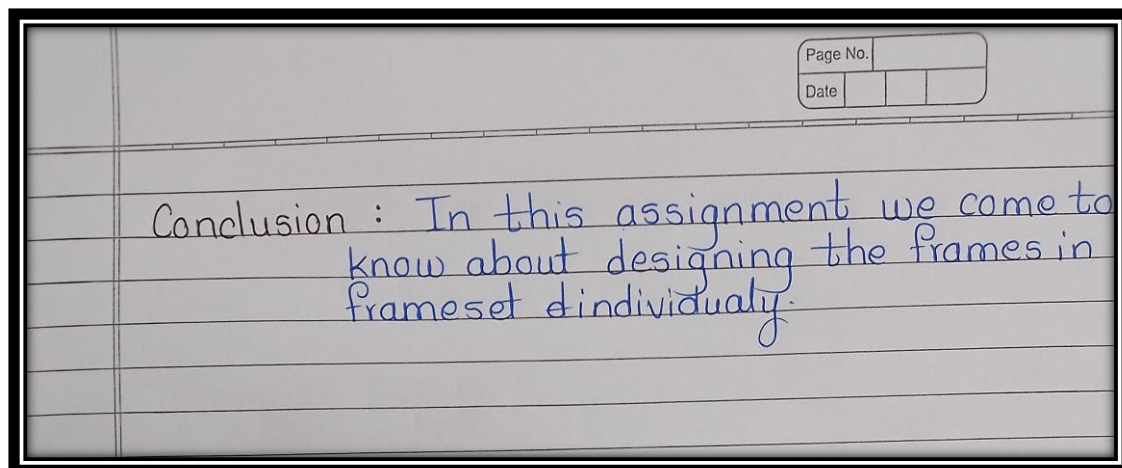 Page No.
Date
Conclusion : In this assignment we come to
know about designing the frames in
frameset & individualy.